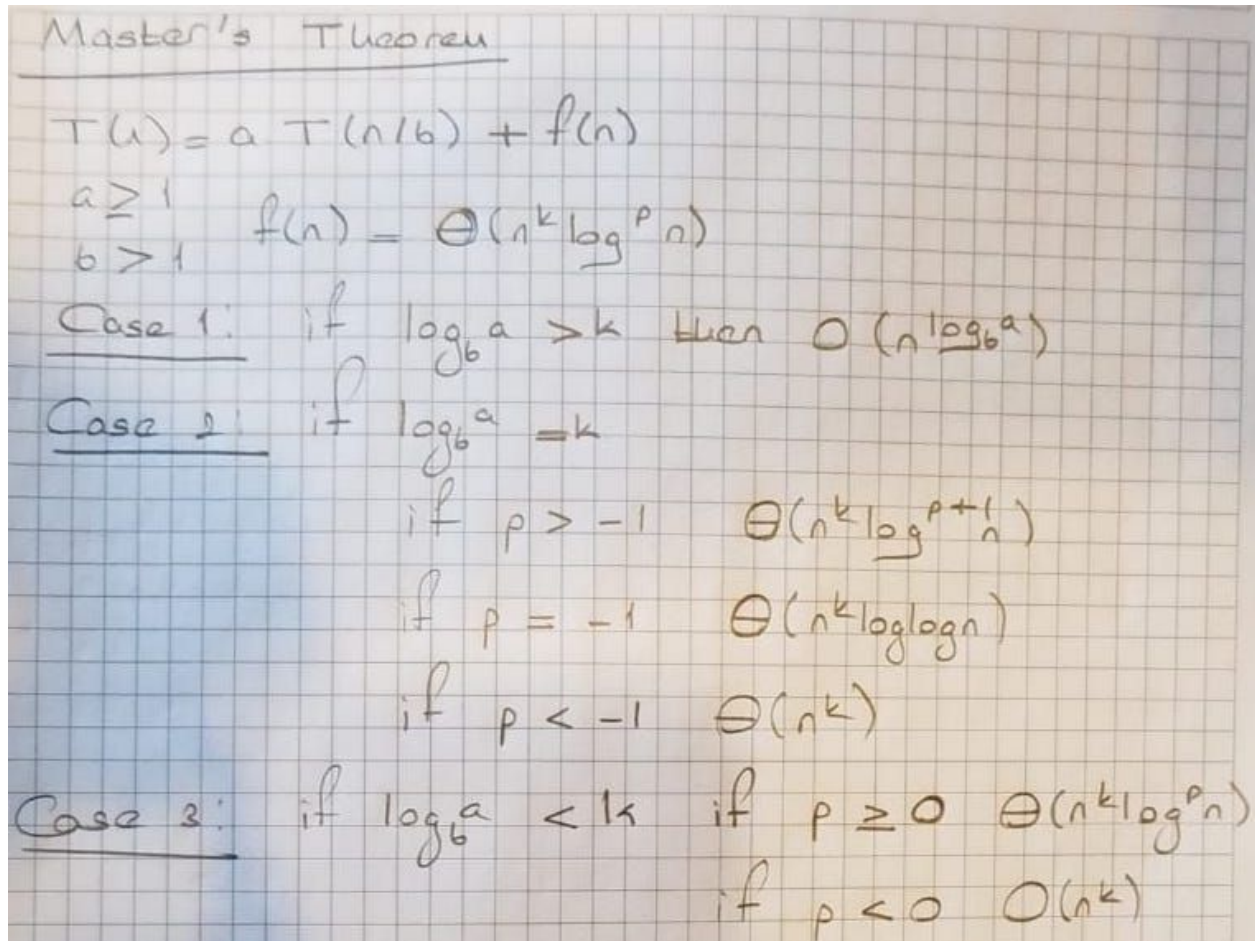 Master's Theorem
T(n) = a T(n/b) + f(n)
a ≥ 1
b > 1
f(n) = Θ(n^k log^p n)
Case 1: if log_b a > k then O(n^log_b a)
Case 2: if log_b a = k
if p > -1 Θ(n^k log^p+1 n)
if p = -1 Θ(n^k loglogn)
if p < -1 Θ(n^k)
Case 3: if log_b a < k if p ≥ 0 Θ(n^k log^p n)
if p < 0 O(n^k)